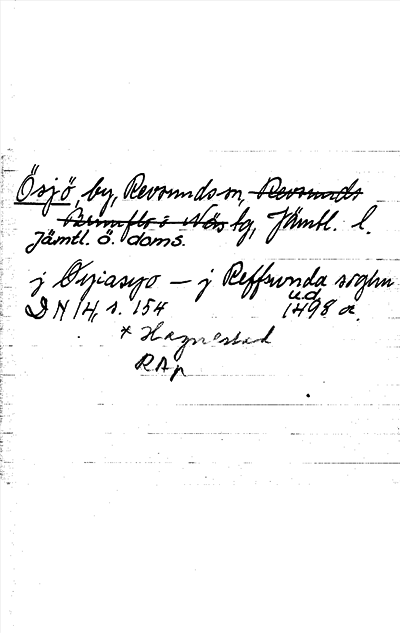 Ösjö, by, Revsunds sn, Revsunds
Brunflo o Näs tg, Jämtl. l.
Jämtl. ö. doms.
j Øyiasyo – j Reffsunda soghn
DN 14, s. 154 ud 1498 a.
* Hagnestad
RAp